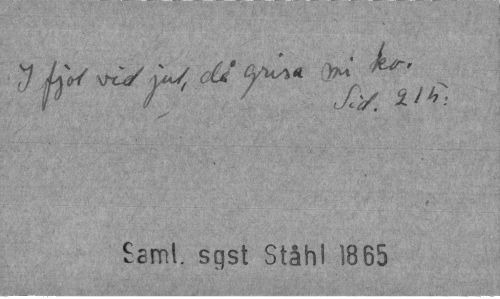 I fjol vid jul, då grisa mi ko.
Sid. 215.
Saml. sgst Ståhl 1865